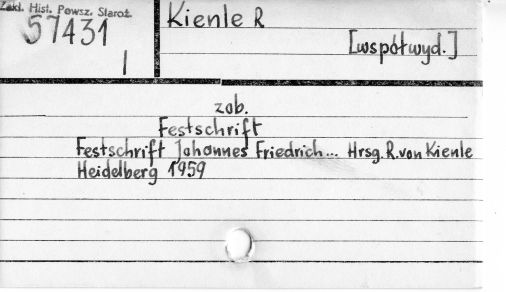 Zakł. Hist. Powsz. Staroż.
57431
I
Kienle R
[współwyd.]
zob.
Festschrift
Festschrift Johannes Friedrich... Hrsg. R. von Kienle
Heidelberg 1959